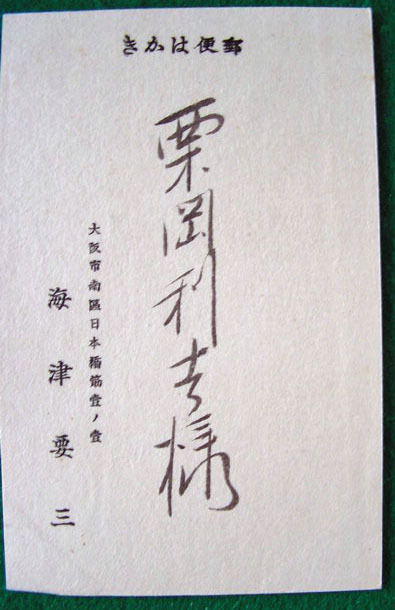 郵便はかき
栗岡利吉様
大阪市南區日本橋筋壹ノ壹
海津要三